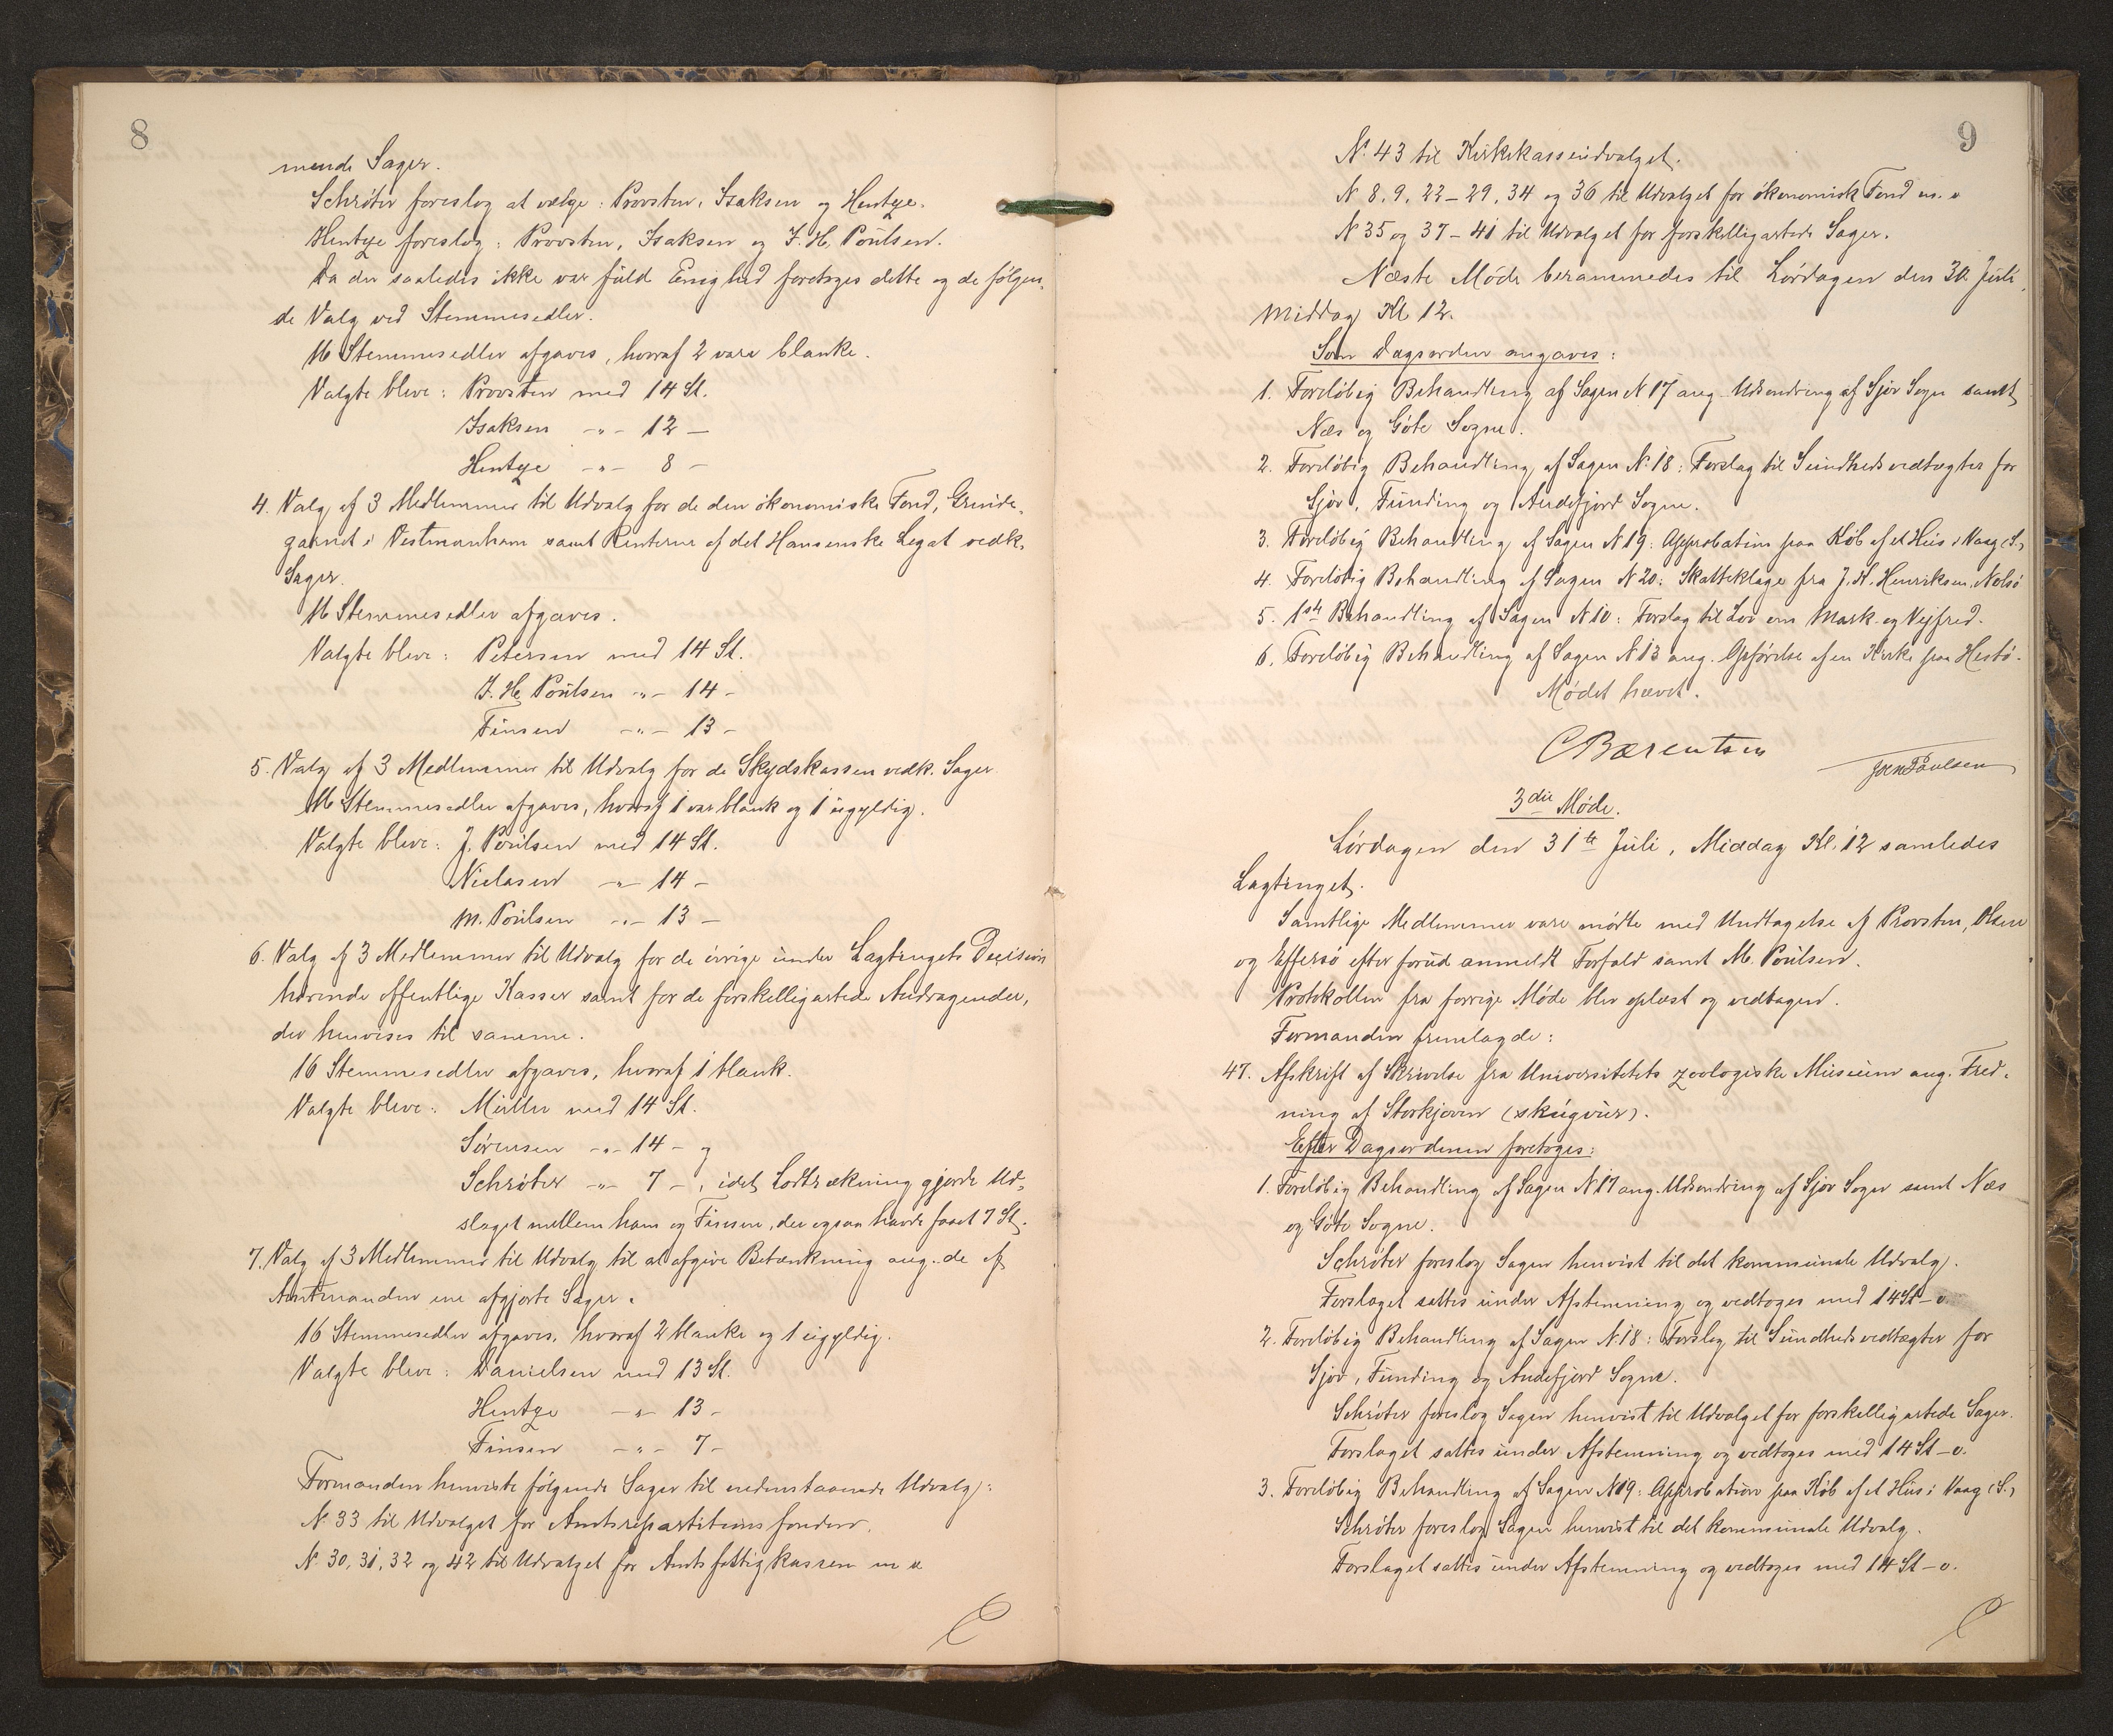 8
mende Sager.
Schrøter foreslog at vælge: Provsten, Isaksen og Hentze.
Hentze foreslog: Provsten, Isaksen og J. H. Poulsen.
Da der saaledes ikke var fuld Enighed foretoges dette og de følgen-
de Valg ved Stemmesedler.
16 Stemmesedler afgaves, hvoraf 2 vare blanke.
Valgte bleve: Provsten med 14 St.
Isaksen -"- 12 -
Hentze -"- 8 -
4. Valg af 3 Medlemmer til Udvalg for de den økonomiske Fond, Grinde-
garnet i Vestmanham samt Renterne af det Hansenske Legat vedk.
Sager.
16 Stemmesedler afgaves.
Valgte bleve: Petersen med 14 St.
J. H. Poulsen -"- 14 -
Finsen -"- 13 -
5. Valg af 3 Medlemmer til Udvalg for de Skydskassen vedk. Sager
16 Stemmesedler afgaves, hvoraf 1 var blank og 1 ugyldig.
Valgte bleve: J. Poulsen med 14 St.
Niclasen -"- 14 -
M. Poulsen -"- 13 -
6. Valg af 3 Medlemmer til Udvalg for de øvrige under Lagtingets Decision
hørende offentlige Kasser samt for de forskelligartede Andragender,
der henvises til samme.
16 Stemmesedler afgaves, hvoraf 1 blank.
Valgte bleve: Müller med 14 St.
Sørensen -"- 14 - og
Schrøter -"- 7 -, idet Lodtrækning gjorde Ud-
slaget mellem ham og Finsen, der ogsaa havde faaet 7 St.
7. Valg af 3 Medlemmer til Udvalg til at afgive Betænkning ang. de af
Amtmanden ene afgjorte Sager.
16 Stemmesedler afgaves, hvoraf 2 blanke og 1 ugyldig.
Valgte bleve: Danielsen med 13 St.
Hentze -"- 13 -
Finsen -"- 7 -
Formanden henviste følgende Sager til nedenstaaende Udvalg:
N. 33 til Udvalget for Amtsrepartitionsfonden.
N. 30, 31, 32 og 42 til Udvalget for Amtsfattigkassen m v
9
N. 43 til Kirkekasseudvalget.
N 8, 9, 22-29, 34 og 36 til Udvalget for økonomisk Fond m. v
N 35 og 37-41 til Udvalget for forskelligartede Sager.
Næste Møde berammedes til Lørdagen den Juli,
Middag Kl 12.
Som Dagsorden angaves:
1. Foreløbig Behandling af Sagen N 17 ang. Udsondring af Sjov Sogn samt
Næs og Gøte Sogne.
2. Foreløbig Behandling af Sagen N. 18: Forslag til Sundhedsvedtægter for
Sjov, Funding og Andefjord Sogne.
3. Foreløbig Behandling af Sagen N 19: Approbation paa Køb af et Hus i Vaag (S.)
4. Foreløbig Behandling af Sagen N 20: Skatteklage fra J. H. Henriksen, Nolsø
5. 1ste Behandling af Sagen N 10: Forslag til Lov om Mark- og Vejfred.
6. Foreløbig Behandling af Sagen N 13 ang. Opførelse af en Kirke paa Hestø.
Mødet hævet.
C Bærentsen
Poulsen
3die Møde.
Lørdagen den 31te Juli, Middag Kl. 12 samledes
Lagtinget.
Samtlige Medlemmer vare mødte med Undtagelse af Provsten, Olsen
og Effersø efter forud anmeldt Forfald samt M. Poulsen.
Protokollen fra forrige Møde blev oplæst og vedtagen.
Formanden fremlagde:
47. Afskrift af Skrivelse fra Universitetets zoologiske Museum ang. Fred-
ning af Storkjoven (skúgvur).
Efter Dagsordenen foretoges:
1. Foreløbig Behandling af Sagen N 17 ang. Udsondring af Sjov Sogn samt Næs
og Gøte Sogne.
Schrøter foreslog Sagen henvist til det kommunale Udvalg.
Forslaget sattes under Afstemning og vedtoges med 14 St - o.
2. Foreløbig Behandling af Sagen N 18: Forslag til Sundhedsvedtægter for
Sjov, Funding og Andefjord Sogne.
Schrøter foreslog Sagen henvist til Udvalget for forskelligartede Sager.
Forslaget sattes under Afstemning og vedtoges med 14 St - o.
3. Foreløbig Behandling af Sagen N 19: Approbation paa Køb af et Hus i Vaag (S.)
Schrøter foreslog Sagen henvist til det kommunale Udvalg.
Forslaget sattes under Afstemning og vedtoges med 14 St - o.